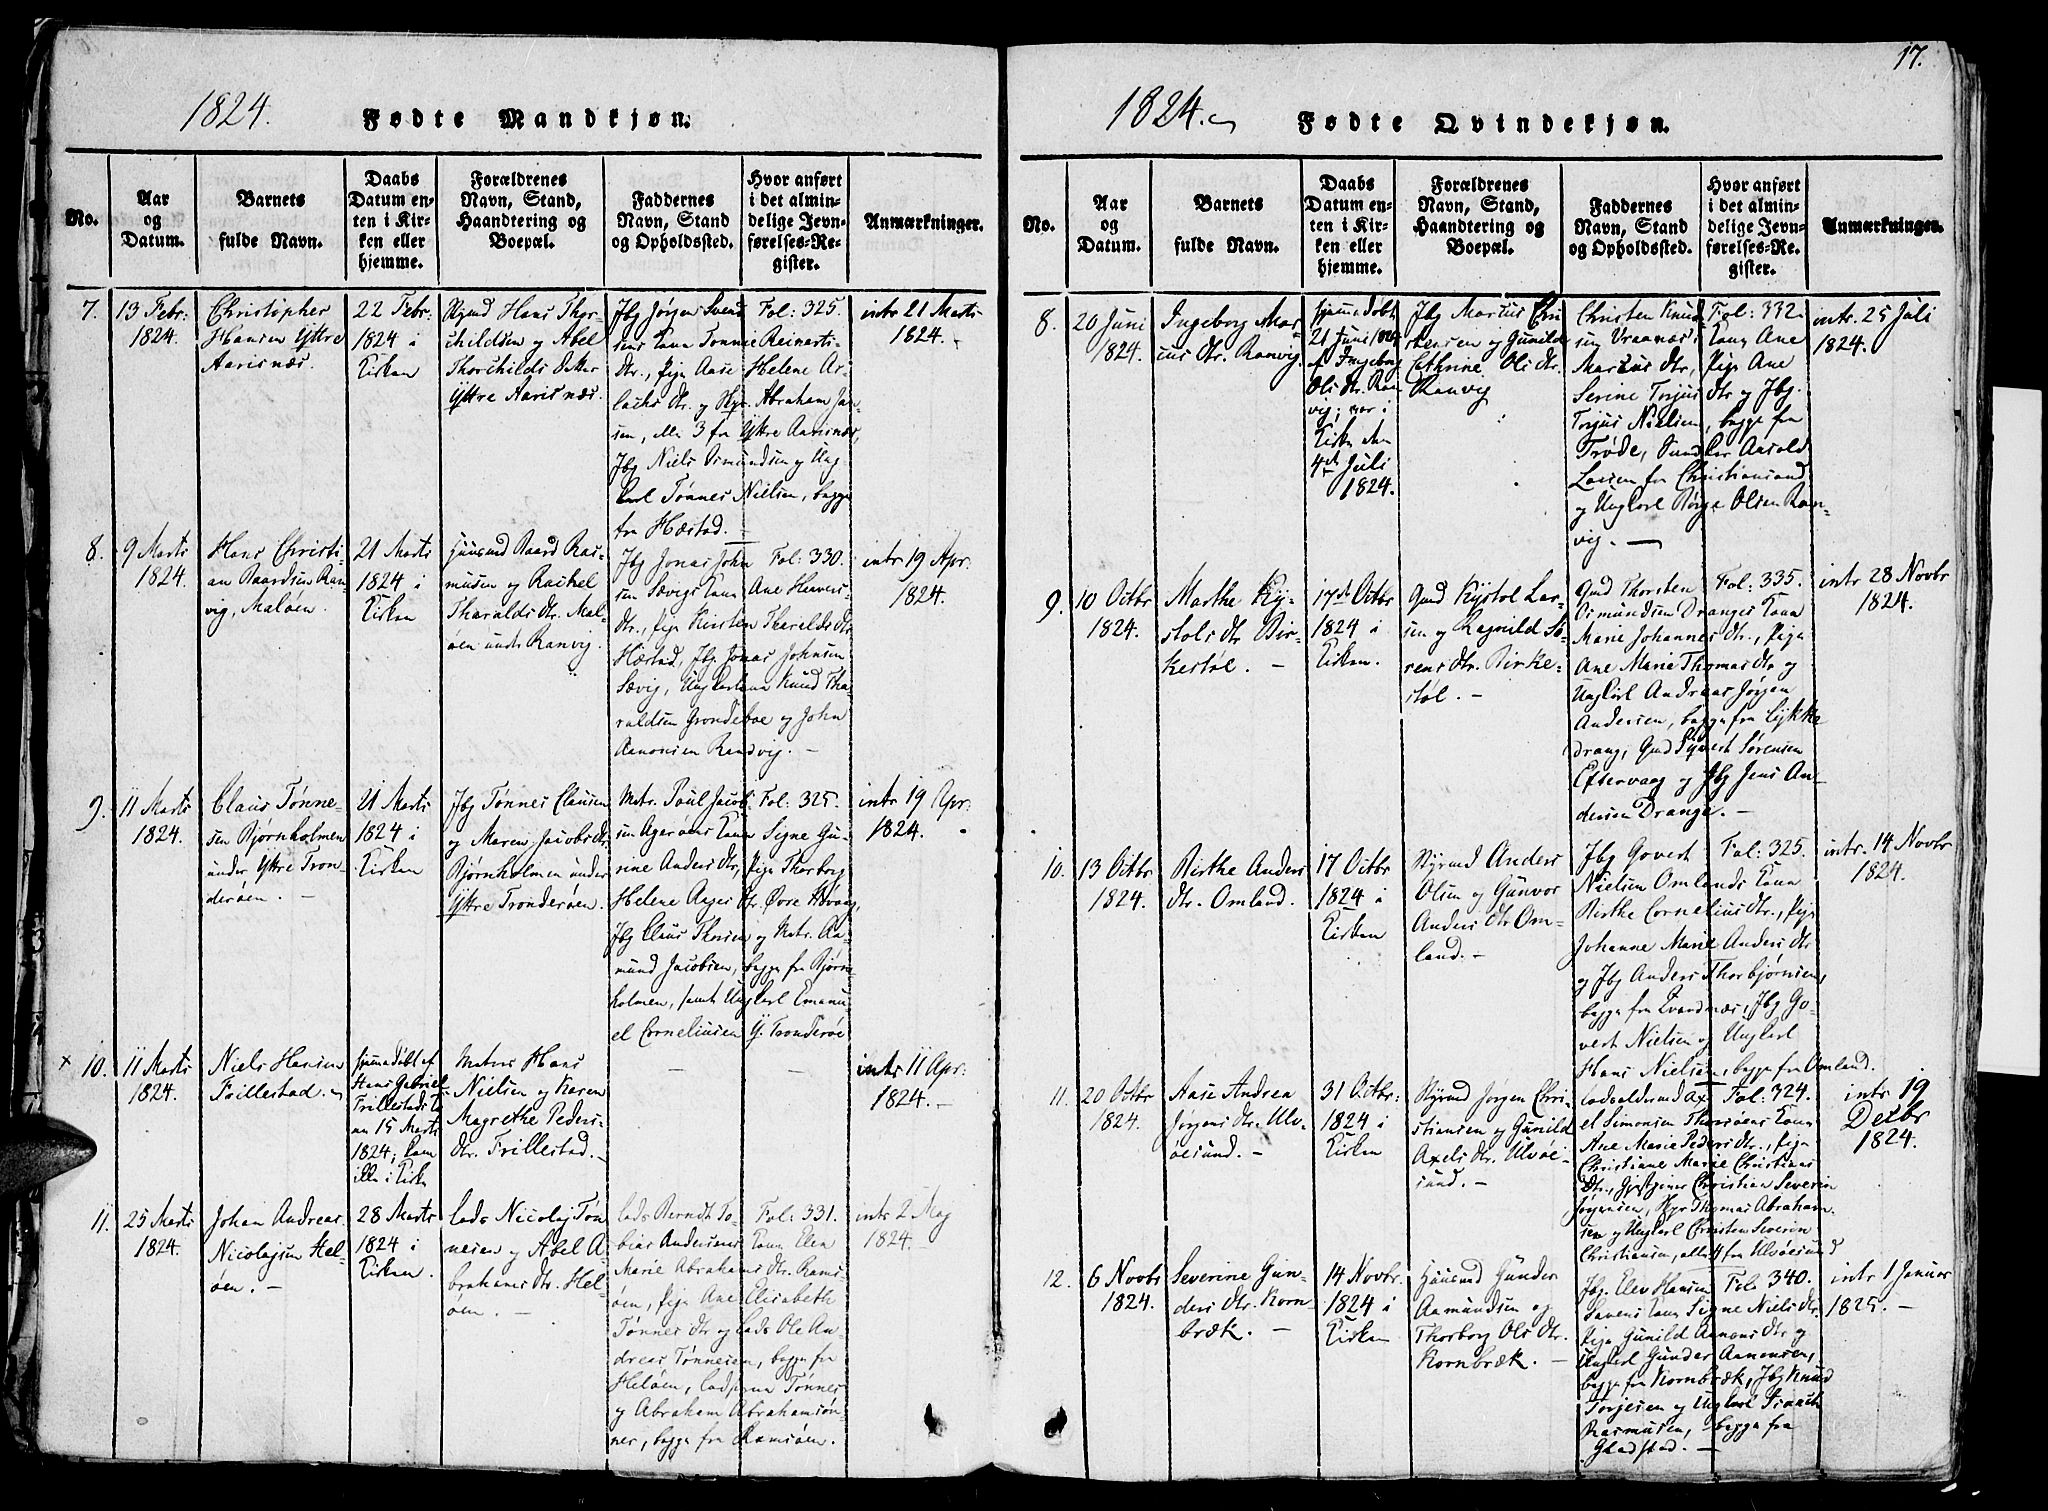 1824.
Fødte Mandkjøn.
No.
Aar
og
Datum.
Barnets
fulde Navn.
Daabs
Datum en-
ten i Kir-
ken eller
hjemme.
Forældrenes
Navn, Stand,
Haandtering og
Boepæl.
Faddernes
Navn, Stand
og Opholdssted.
Hvor anført
i det almin-
delige Jevn-
førelses-Re-
gister.
Anmærkninger.
7.
13 Febr:
1824.
Christopher
Hansen Yttre
Aarisnæs.
22 Febr:
1824 i
Kirken
Hans Thor-
childsen og Abel
Thorchilds
Yttre Aarisnæs.
Jbg Jørgen Svend
sens Kone Tonnie Reinerts
dtr., Pige Aase Helene Ar-
lachs dtr. og Abraham Jan-
sen, alle 3 fra Yttre Aarisnæs,
Jbg Niels Osmundsen og Ung
karl Tønnes Nielsen, begge
fra Hæstad.
Fol: 325.
intr 21 Marts
1824.
8.
9 Marts
1824.
Hans Christi
an Baardsen Ran
vig, Maløen.
21 Marts
1824 i
Kirken
Huusmd Baard Ras-
musen og Rachel
Tharalds dtr. Mal-
øen under Ranvig.
Jbg Jonas John
sen Søvigs Kone Ane
dtr., Pige Kirsten Tharalds dtr
Hæstad, Jbg Jonas Johnsen
Søvig, Ungkarlene Knud Tha-
raldsen Grondeboe og John
Aanonsen Randvig.
Fol: 330.
intr 19 Apr:
1824.
9.
11 Marts
1824.
Claus Tønne-
sen Bjørnholmen
under Yttre Tron-
derøen.
21 Marts
1824 i
Kirken
Jbg Tønnes Clausen
og Maren Jacobs dtr
Bjørnholmen under
Yttre Tronderøen.
Matr. Poul Jacob
sen Agerøens Kone Signe Gu-
rine Anders dtr, Pige Thorborg
Helene Aages dtr. Øvre Haavaag,
Jbg Claus Thorsen og Matr. Aa-
mund Jacobsen, begge fra Bjørn-
holmen, samt Ungkarl Emanu
el Corneliusen Y. Tronderøe
Fol: 325.
intr 19 Apr:
1824.
x 10.
11 Marts
1824.
Niels Hansen
Frillestad.
hjemmedøbt af
Hans Gabriel
Frillestad
15 Marts
1824; kom
ikke i Kirke
Matros Hans
Nielsen og Karen
Magrethe Peders
dtr. Frillestad.
intr 11 Apr:
1824.
11.
25 Marts
1824.
Johan Andreas
Nicolajsen Hel-
øen.
28 Marts
1824 i
Kirken.
Lods Nicolaj Tøn
nesen og Abel A-
brahams dtr. Hel
øen.
Lods Berndt To-
bias Andersens Kone Elen
Marie Abrahams dtr. Rams-
øen, Pige Ane Elisabeth
Tønnes dtr og Lods Ole An-
dreas Tønnesen, begge fra
Heløen, Tønnes
og Abraham Abrahamsøn-
ner, begge fra Ramsøen.
Fol: 331.
intr 2 Maj
1824.
17.
1824.
Fødte Qvindekjøn.
No.
Aar
og
Datum.
Barnets
fulde Navn.
Daabs
Datum en-
ten i Kir-
ken eller
hjemme.
Forældrenes
Navn, Stand,
Haandtering og
Boepæl.
Faddernes
Navn, Stand
og Opholdssted.
Hvor anført
i det almin-
delige Jevn-
førelses-Re-
gister.
Anmærkninger.
8.
20 Juni
1824.
Ingeborg Mar-
cus dtr. Ranvig.
hjemmedøbt
21 Juni 1824
af Ingeborg
Ols dtr. Ran
vig; var i
Kirke den
4de Juli
1824.
Jbg Marcus Chri
stensen og Gunild
Cathrine Ols dtr.
Ranvig
Christen Knud-
sen Vraanæs's Kone Ane
Marcus dtr, Pige Ane
Serine Torjus dtr og Jbg.
Torjus Nielsen, begge fra
Trøde, Arnold
Larsen fra Christiansand
og Ungkarl Børge Olsen Ran-
vig.
Fol: 332.
intr. 25 Juli
1824.
9.
10 Octbr
1824.
Marthe Ky-
stols dtr Bir-
kestøl.
17de Octbr
1824 i
Kirken.
Gmd Kystol Lar-
sen og Ragnild Sø-
rens dtr. Birke-
støl.
Gmd Thorsten
Osmundsen Dranges Kone
Marie Johannes dtr., Pige
Ane Marie Thomas dtr og
Ungkarl Andreas Jørgen
Andersen, begge fra Lykke
drang, Gmd Syvert Sørensen
Eftervaag og Jbg Jens An-
dersen Drange.
Fol: 335.
intr 28 Novbr
1824.
10.
13 Octbr
1824.
Birthe Anders
dtr. Omland.
17 Octbr
1824 i
Kirken
Anders
Olsen og Gunvor
Anders dtr Om-
land.
Jbg Govert
Nielsen Omlands Kone
Birthe Cornelius dtr., Pige
Johanne Marie Anders dtr
og Jbg Anders Thorbjørnsen,
begge fra Tvardnæs, Jbg Go-
vert Nielsen og Ungkarl
Hans Nielsen, begge fra Omland.
Fol: 325.
intr. 14 Novbr
1824.
11.
20 Octbr
1824.
Aase Andrea
Jørgens dtr. Ulv-
øesund.
31 Octbr:
1824 i
Kirken
Jørgen Chri-
stiansen og Gunild
Axels dtr. Ulvøe-
sund.
Lodsoldermd Ax-
el Simonsen Kone
Ane Marie Peders dtr., Pige
Christiane Marie Christians
dtr., Christian Severin
Jørgensen, Thomas Abraham-
sen og Ungkarl Christen Severin
Christiansen, alle 4 fra Ulvøesund
Fol: 324.
intr 19
Decbr
1824.
12.
6 Novbr
1824.
Severine Gun-
ders dtr. Korn-
bræk.
14 Novbr.
1824 i
Kirken
Huusmd Gunder
Aamundsen og
Thorborg Ols dtr.
Kornbræk.
Jbg. Elev Hansen
Kone Signe Niels dtr.
Pige Gunild Aanons dtr og
Ungkarl Gunder Aanonsen,
begge fra Kornbræk, Jbg Knud
Torjesen og Ungkarl
Rasmusen, begge fra
Gladstad.
Fol: 340.
intr 1 Januar
1825.